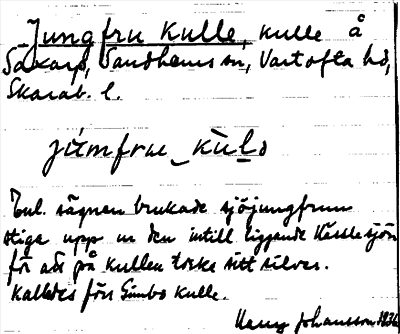 Jungfru Kulle, kulle å
Saxarp, Sandhems sn, Vartofta hd,
Skarab. l.
jùmfru_kùlə
Enl. sägnen brukade sjöjungfrun
stiga upp ur den intill liggande Kesslesjön
för att på kullen torka sitt silver.
Kallades förr Simbo kulle.
Harry Johansson 1934